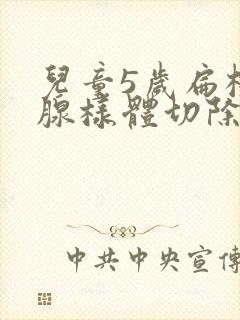 兒童5歲扁
腺樣體切除
中共中央宣傳